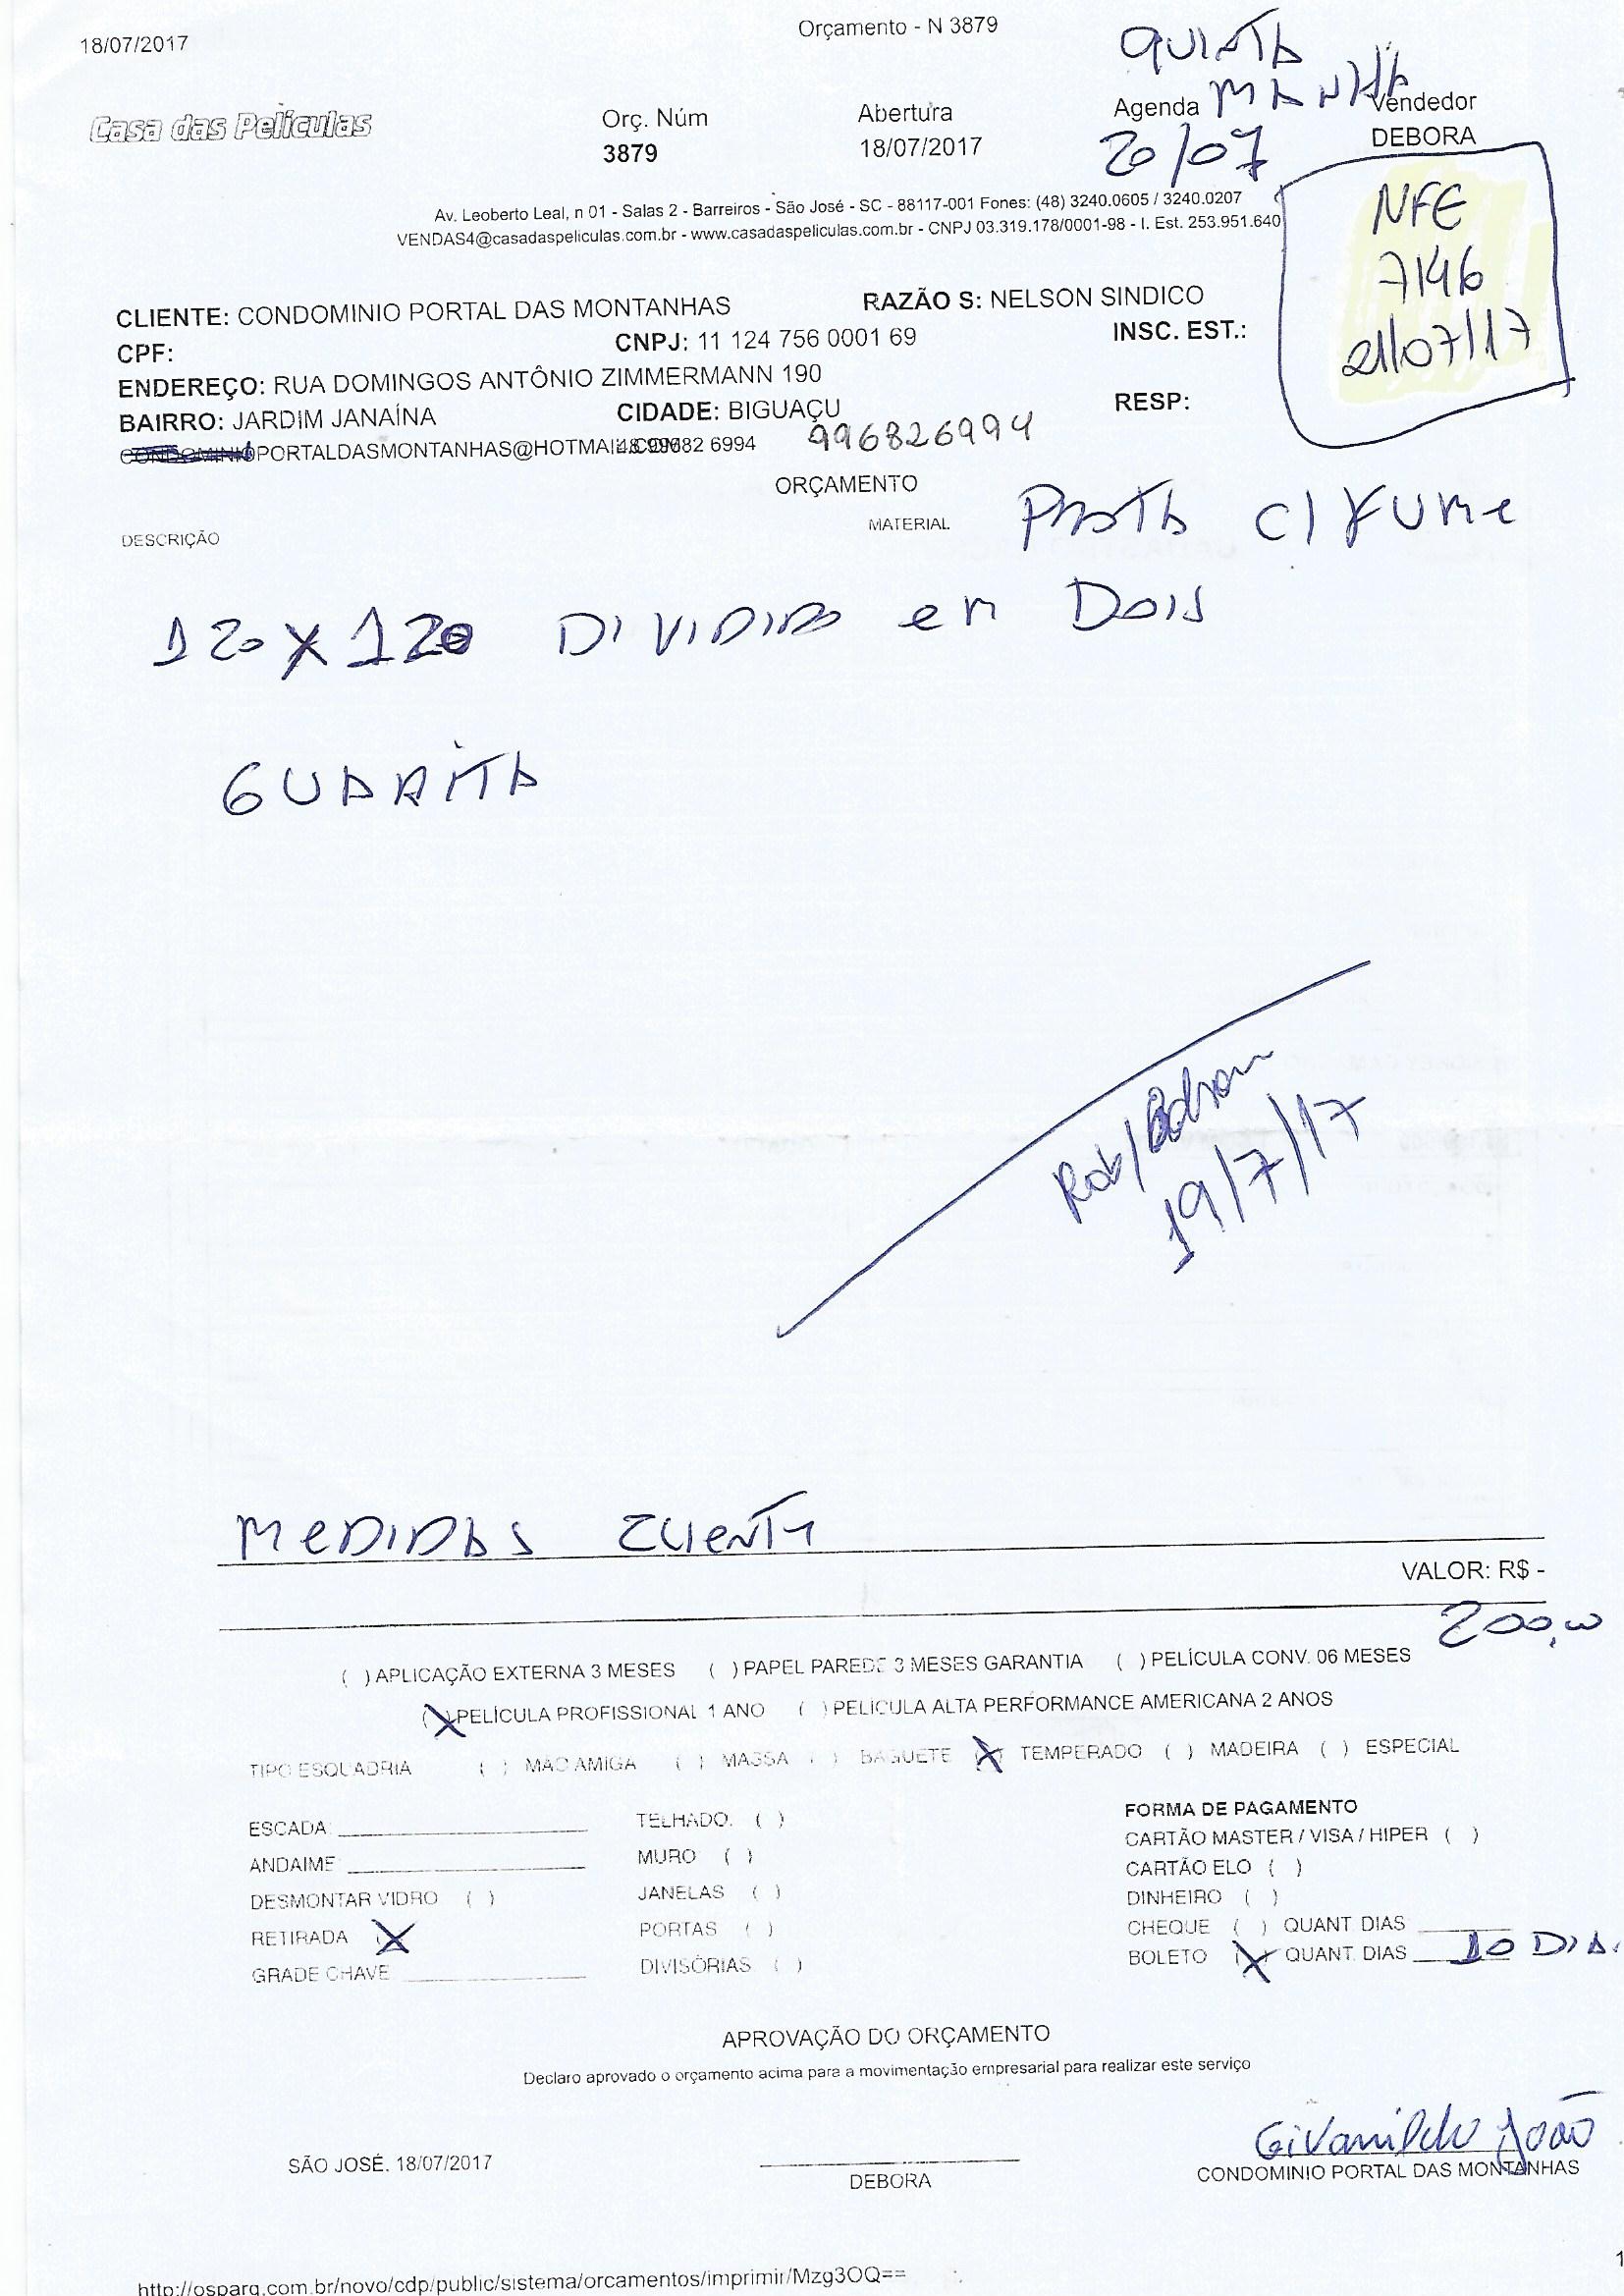 18/07/2017
Orçamento - N 3879
QUINTA
MANHA
Casa das Películas
Orç. Núm
3879
Abertura
18/07/2017
Agenda
20/07
Vendedor
DEBORA
Av. Leoberto Leal, n 01 - Salas 2 - Barreiros - São José - SC - 88117-001 Fones: (48) 3240.0605 / 3240.0207
VENDAS4@casadaspeliculas.com.br - www.casadaspeliculas.com.br - CNPJ 03.319.178/0001-98 - I. Est. 253.951.640
NFE
7146
21/07/17
CLIENTE: CONDOMINIO PORTAL DAS MONTANHAS RAZÃO S: NELSON SINDICO
CPF: CNPJ: 11 124 756 0001 69 INSC. EST.:
ENDEREÇO: RUA DOMINGOS ANTÔNIO ZIMMERMANN 190
BAIRRO: JARDIM JANAÍNA CIDADE: BIGUAÇU RESP:
CONDOMINIOPORTALDASMONTANHAS@HOTMAIL.COM 48 99682 6994 996826994
ORÇAMENTO
DESCRIÇÃO MATERIAL PRATA C/ FUME
120 X 120 DIVIDIDO em DOIS
GUARITA
Rob/Edson
19/7/17
MEDIDAS CLIENTE
VALOR: R$ -
200,00
( ) APLICAÇÃO EXTERNA 3 MESES ( ) PAPEL PAREDE 3 MESES GARANTIA ( ) PELÍCULA CONV. 06 MESES
(X) PELÍCULA PROFISSIONAL 1 ANO ( ) PELICULA ALTA PERFORMANCE AMERICANA 2 ANOS
TIPO ESQUADRIA ( ) MAO AMIGA ( ) MASSA ( ) BAGUETE (X) TEMPERADO ( ) MADEIRA ( ) ESPECIAL
ESCADA: TELHADO. ( ) FORMA DE PAGAMENTO
ANDAIME: MURO ( ) CARTÃO MASTER / VISA / HIPER ( )
DESMONTAR VIDRO ( ) JANELAS ( ) CARTÃO ELO ( )
RETIRADA (X) PORTAS ( ) DINHEIRO ( )
GRADE CHAVE DIVISÓRIAS ( ) CHEQUE ( ) QUANT. DIAS
BOLETO (X) QUANT. DIAS 10 DIA.
APROVAÇÃO DO ORÇAMENTO
Declaro aprovado o orçamento acima para a movimentação empresarial para realizar este serviço
Givanildo João
SÃO JOSÉ. 18/07/2017
DEBORA
CONDOMINIO PORTAL DAS MONTANHAS
1
http://osparq.com.br/novo/cdp/public/sistema/orcamentos/imprimir/Mzg3OQ==